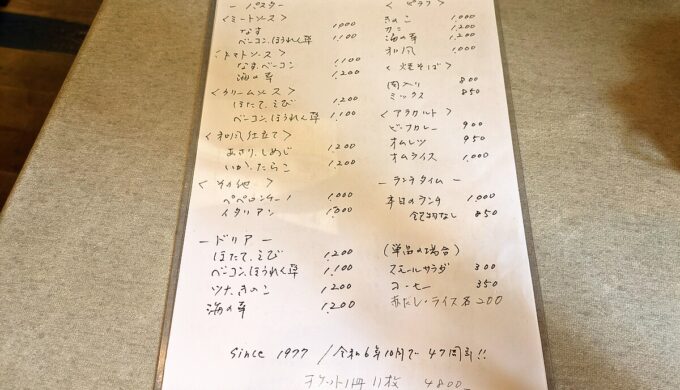 ー パスター
<ミートソース>
なす 1,000
ベーコン、ほうれん草 1,100
<トマトソース>
なす、ベーコン 1,100
海の幸 1,200
<クリームソース>
ほたて、えび 1,200
ベーコン、ほうれん草 1,100
<和風仕立て>
あさり、しめじ 1,200
いか、たらこ 1,200
<その他>
ペペロンチーノ 1,000
イタリアン 1,000
ードリアー
ほたて、えび 1,200
ベーコン、ほうれん草 1,100
ツナ、きのこ 1,200
海の幸 1,200
<ピラフ>
きのこ 1,000
カニ 1,200
海の幸 1,200
和風 1,000
<焼そば>
肉入り 800
ミックス 850
<アラカルト>
ビーフカレー 900
オムレツ 950
オムライス 1,000
ーランチタイムー
本日のランチ 1,000
飲物なし 850
(単品の場合)
スモールサラダ 300
コーヒー 350
赤だし・ライス各200
Since 1977 / 令和6年10月で47周年!!
チケット1冊11枚 4800